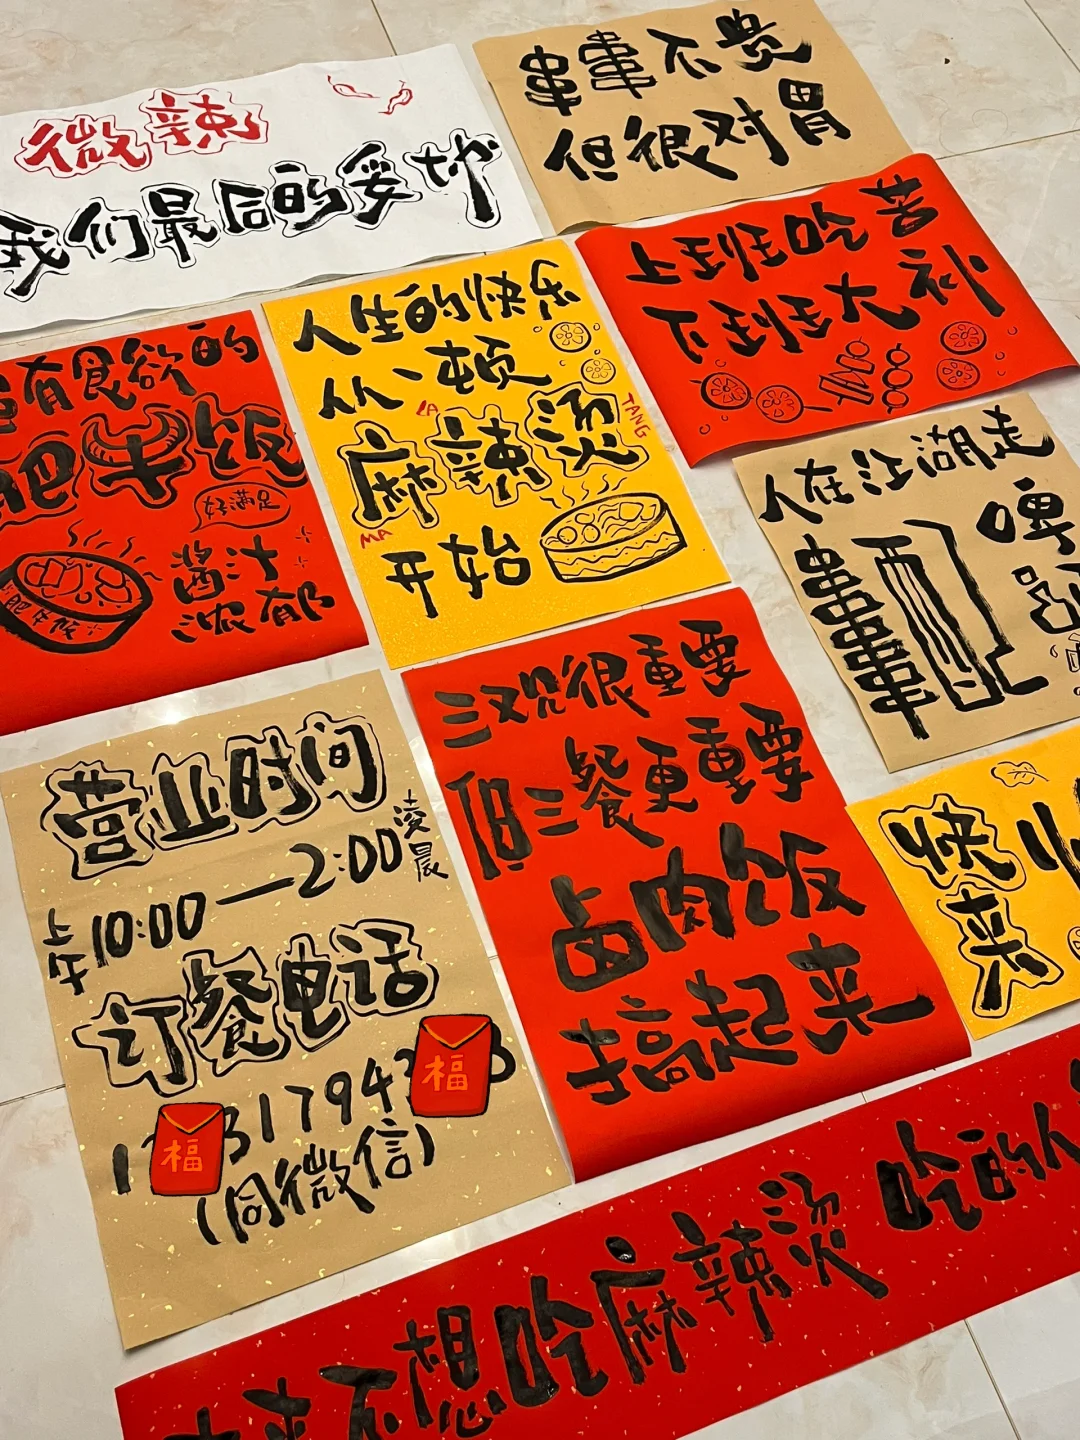 微辣
我们最后的妥协
串串不贵
但很对胃
上班吃苦
下班大补
人生的快乐
从一顿
LA
TANG
麻辣烫
MA
开始
有食欲的
肥牛饭
好满足
酱汁
浓郁
肥牛饭
人在江湖走
啤
串串配
三观很重要
但三餐更重要
卤肉饭
搞起来
营业时间
上午10:00—2:00凌晨
订餐电话
福
1
317943
福
(同微信)
快
来
本来不想吃麻辣烫
吃的人